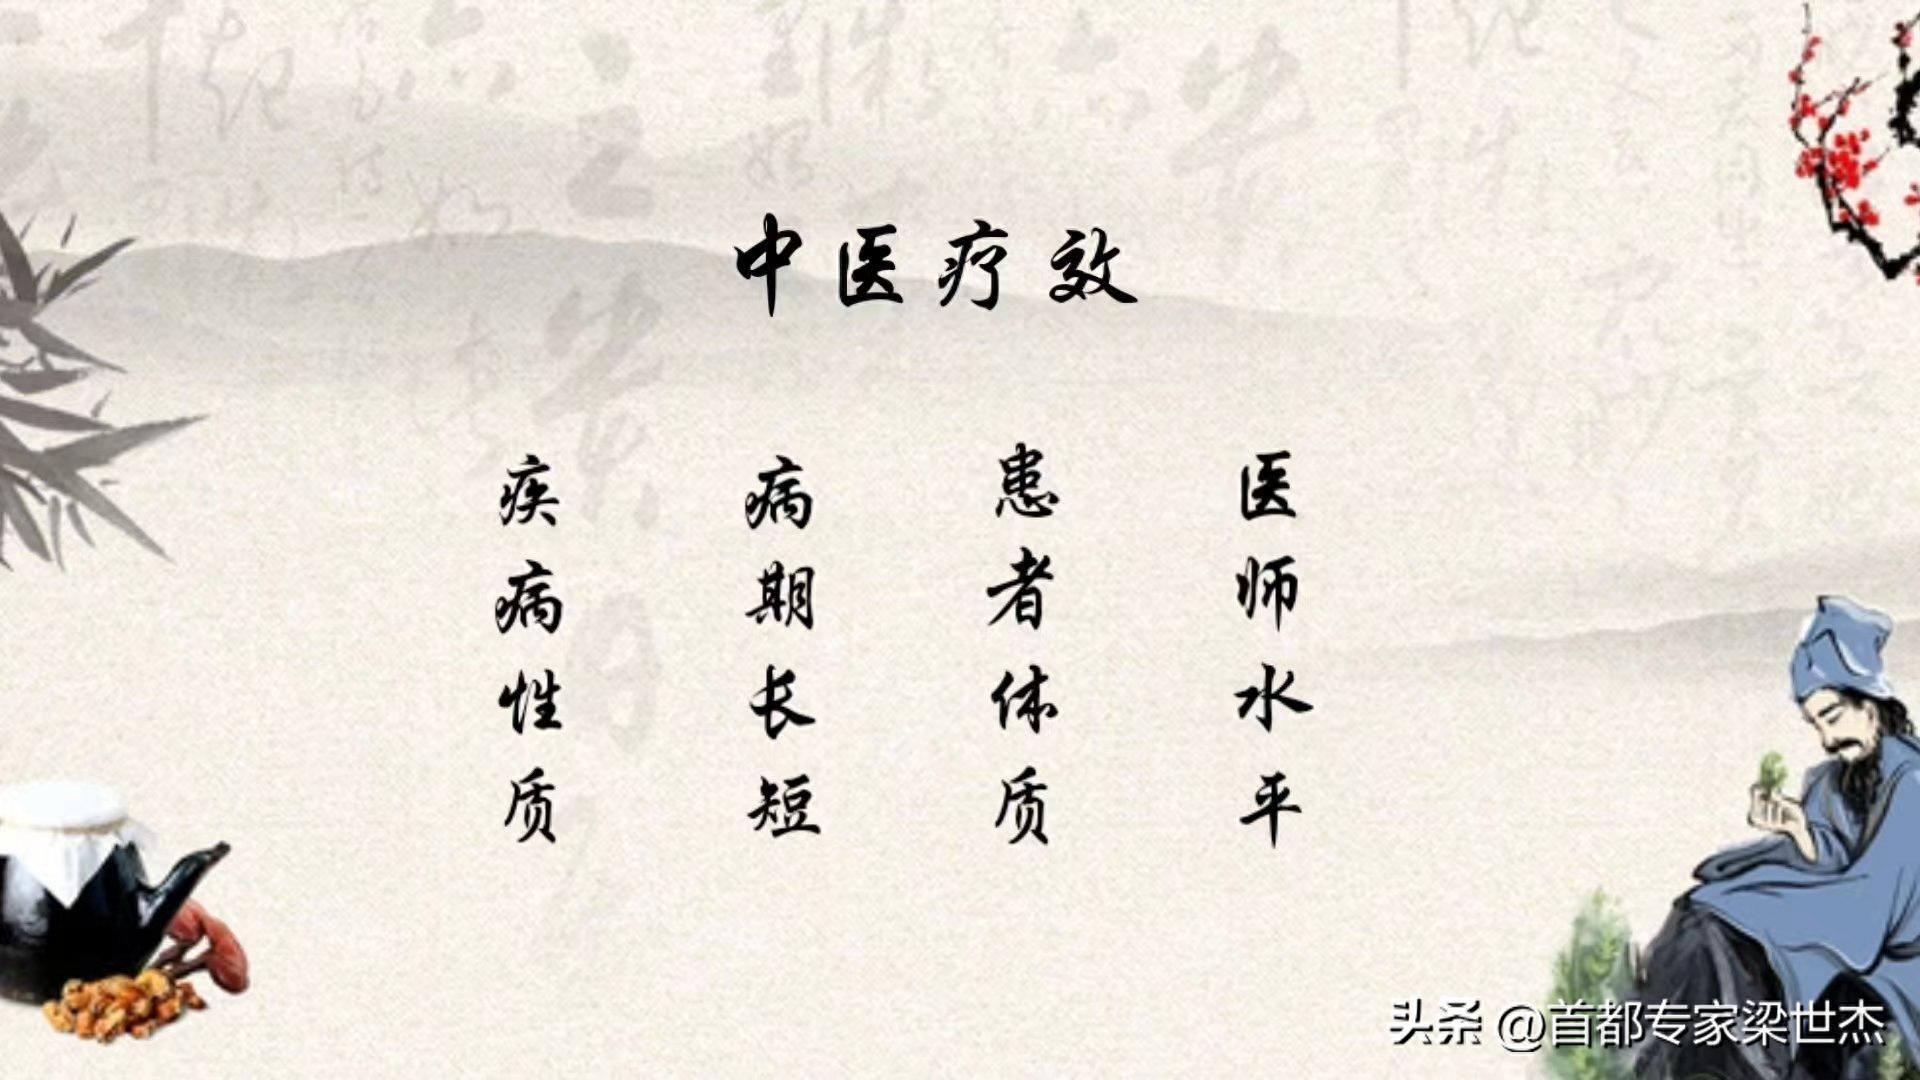 中医疗效
疾病性质
病期长短
患者体质
医师水平
头条 @首都专家梁世杰